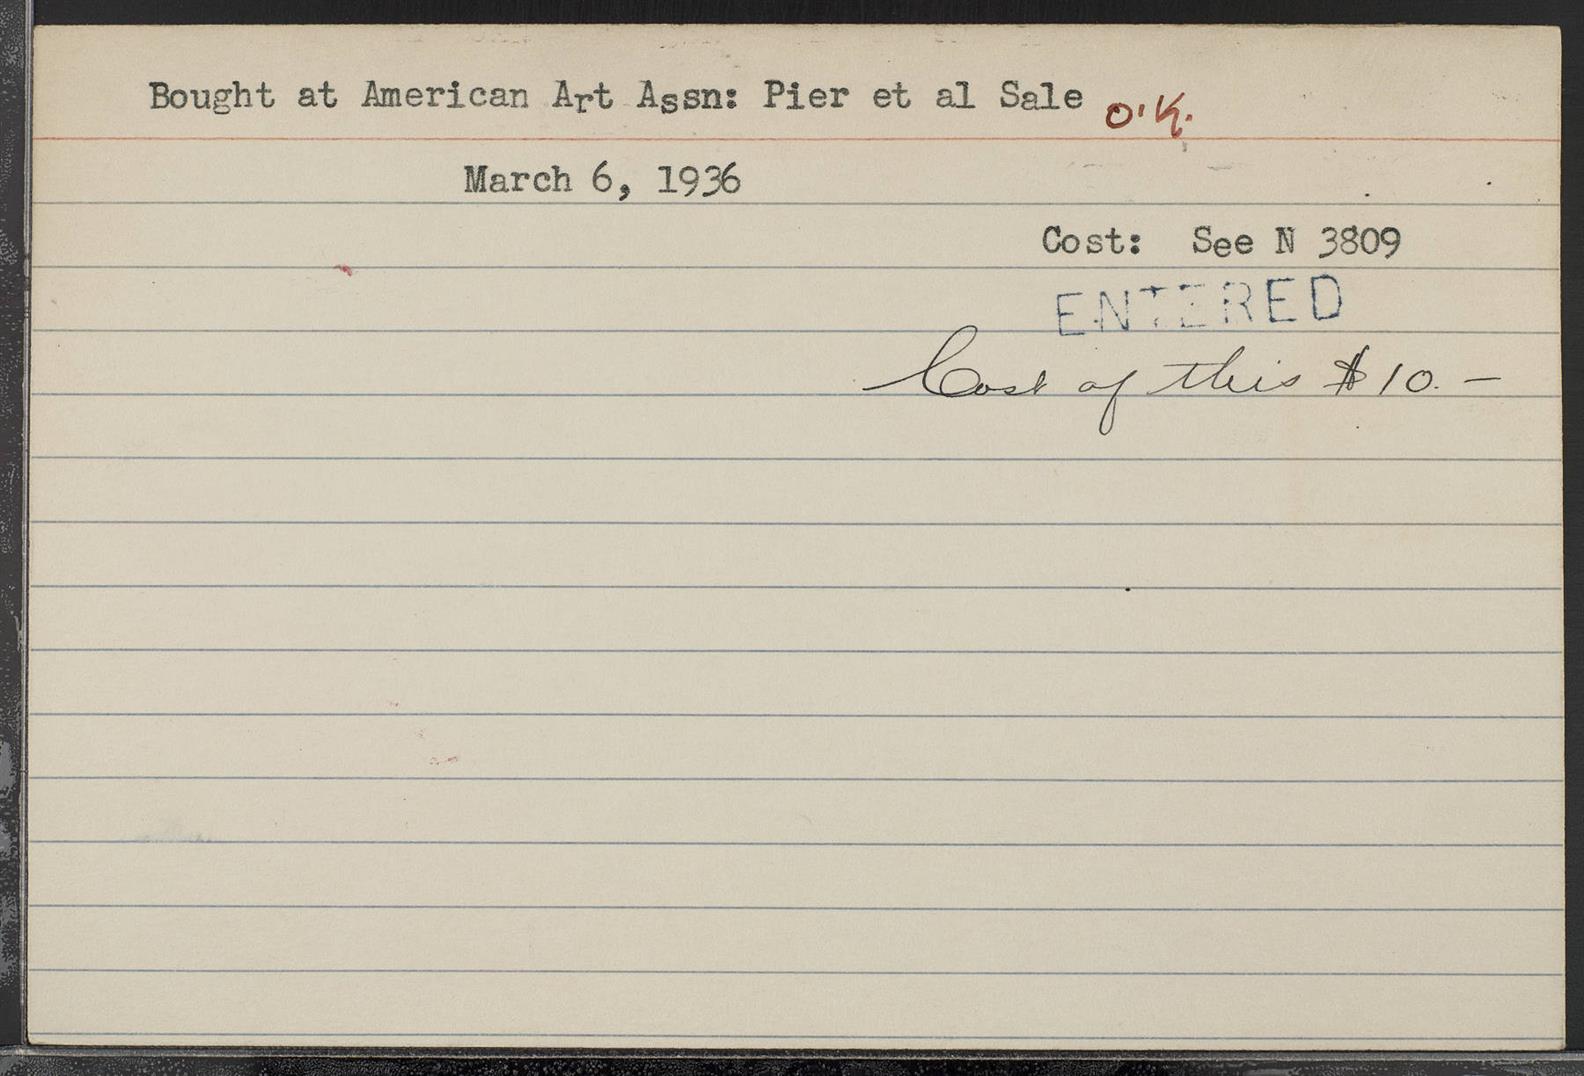 Bought at American Art Assn: Pier et al Sale O.K.
March 6, 1936
Cost: See N 3809
ENTERED
Cost of this $10.—